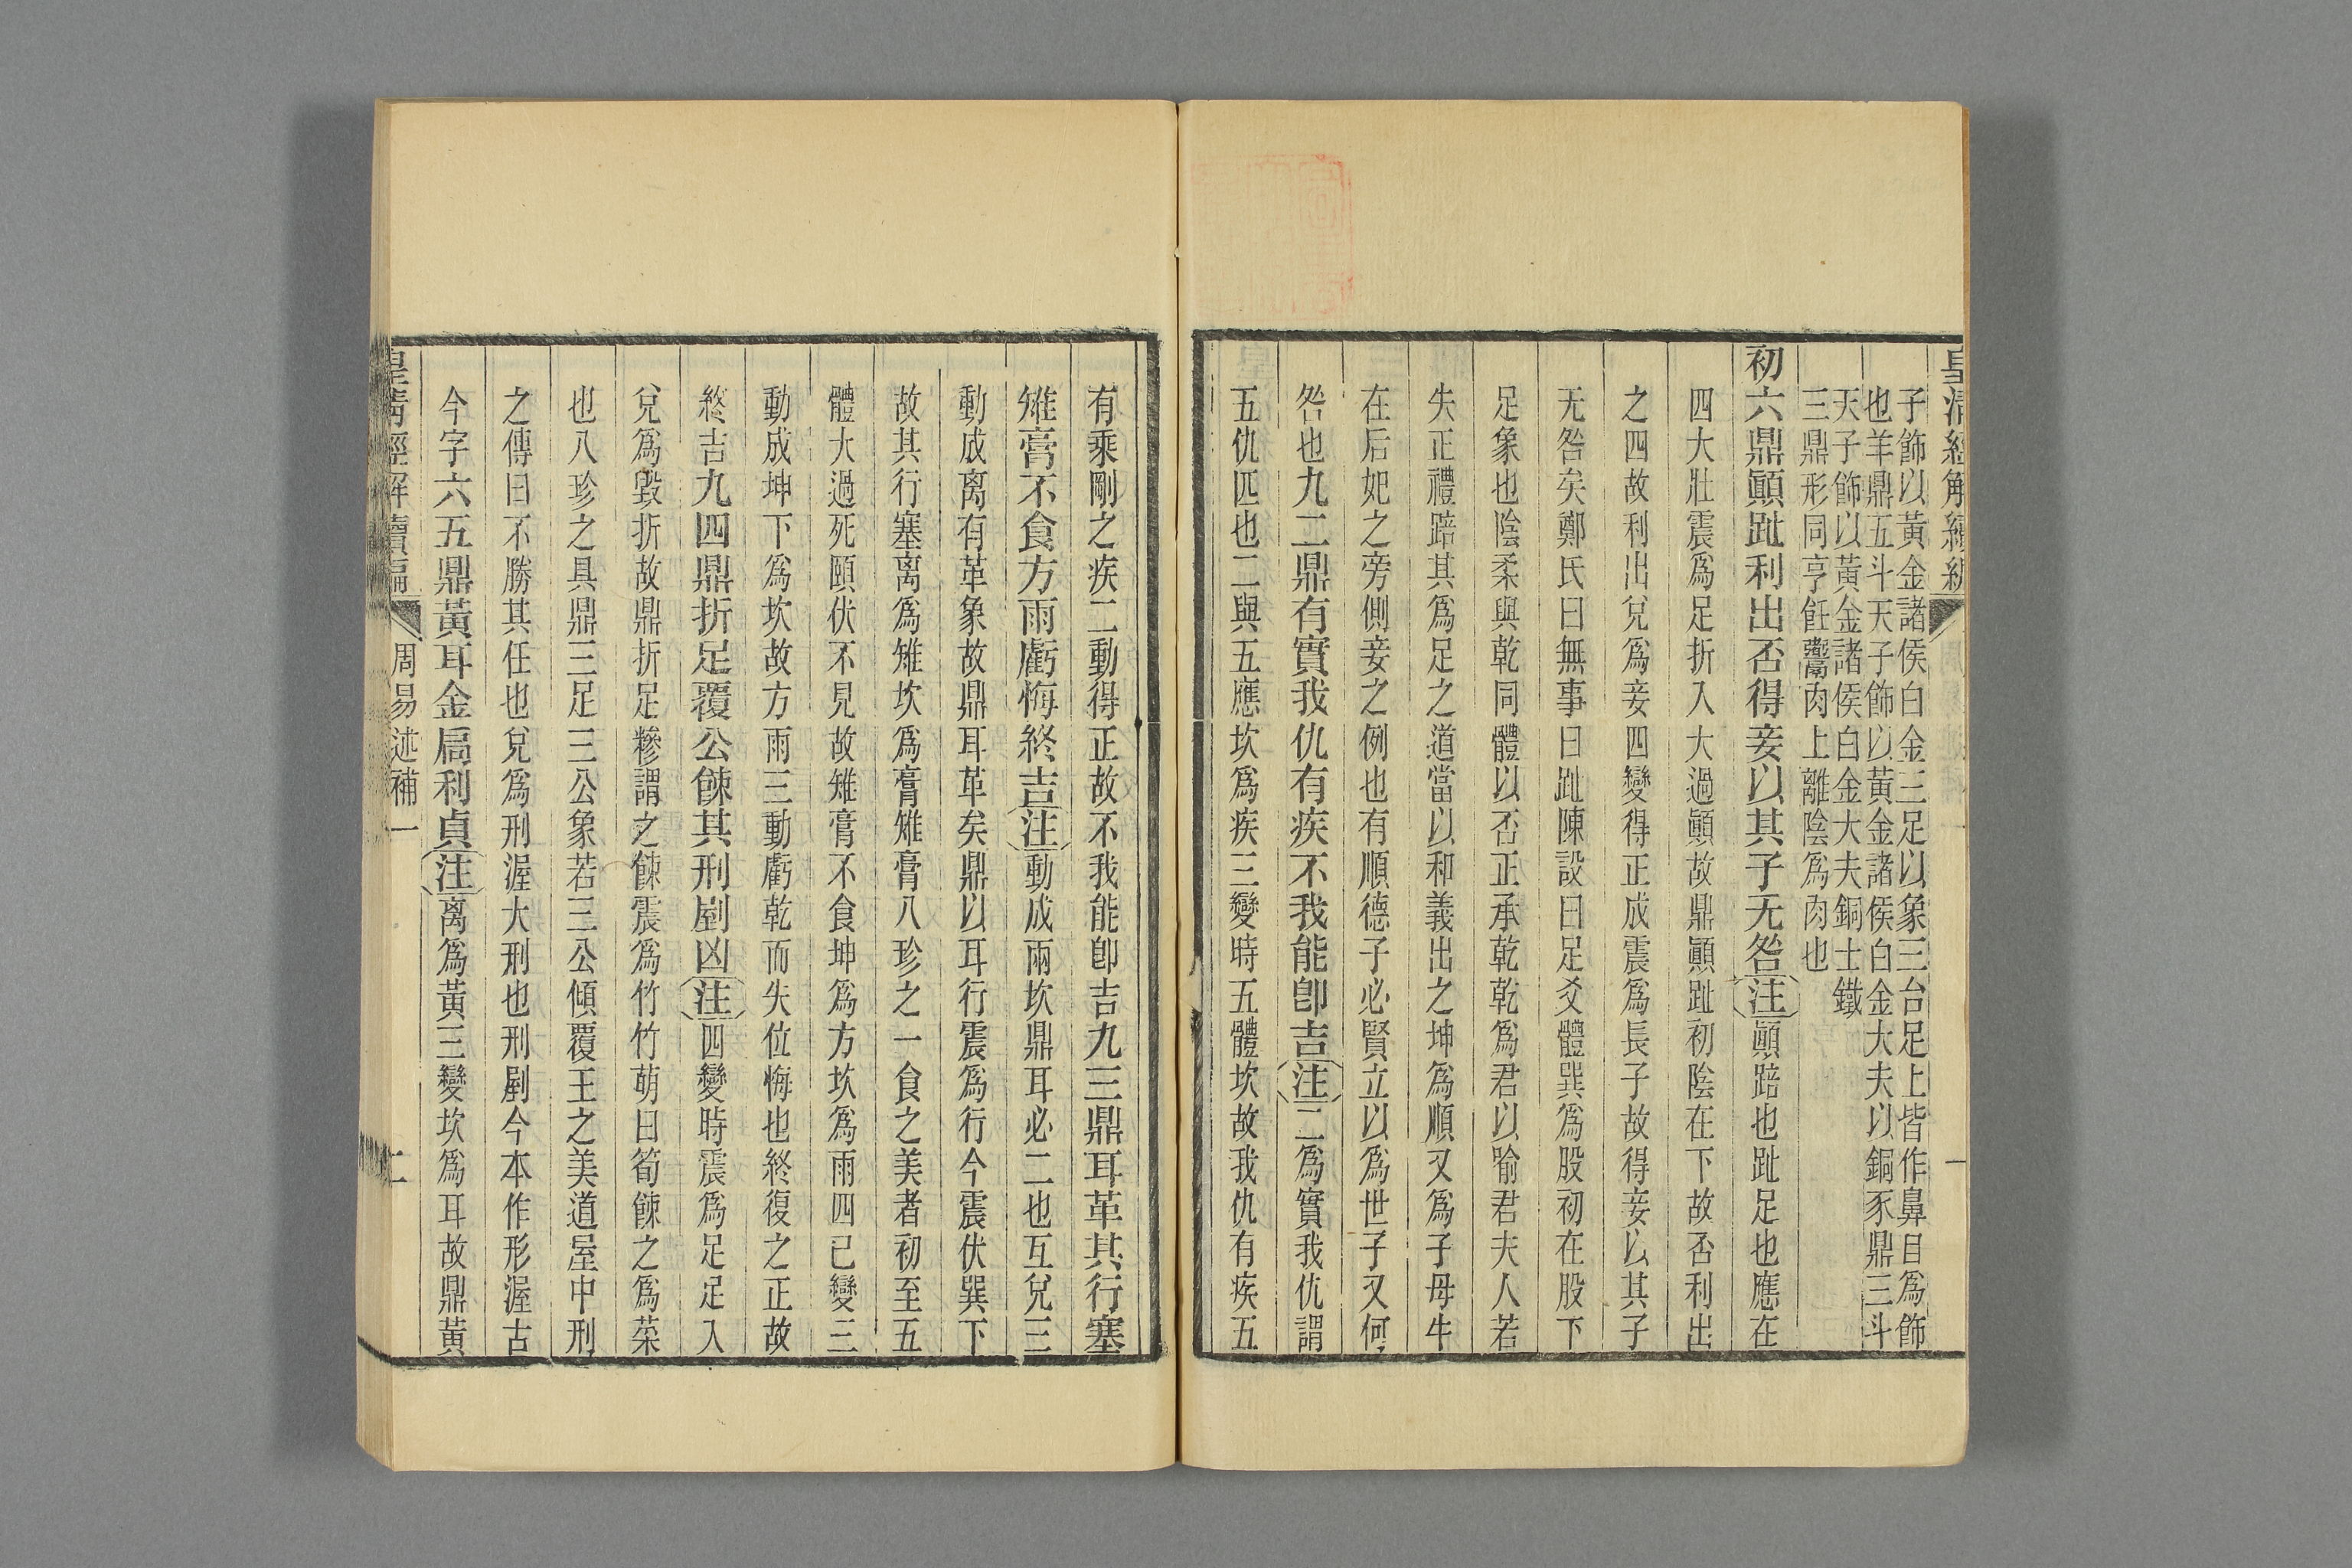 皇清經解續編
一
子飾以黃金諸侯白金三足以象三台足上皆作鼻目爲飾
也羊鼎五斗天子飾以黃金諸侯白金大夫以銅豕鼎三斗
天子飾以黃金諸侯白金大夫銅士鐵
三鼎形同亨飪鬻肉上離陰爲肉也
初六鼎顚趾利出否得妾以其子无咎注顚踣也趾足也應在
四大壯震爲足折入大過顚故鼎顚趾初陰在下故否利出
之四故利出兌爲妾四變得正成震爲長子故得妾以其子
无咎矣鄭氏曰無事曰趾陳設曰足爻體巽爲股初在股下
足象也陰柔與乾同體以否正承乾乾爲君以喻君夫人若
失正禮踣其爲足之道當以和義出之坤爲順又爲子母牛
在后妃之旁側妾之例也有順德子必賢立以爲世子又何
咎也九二鼎有實我仇有疾不我能卽吉注二爲實我仇謂
五仇匹也二與五應坎爲疾三變時五體坎故我仇有疾五
有乘剛之疾二動得正故不我能卽吉九三鼎耳革其行塞
雉膏不食方雨虧悔終吉注動成兩坎鼎耳必二也互兌三
動成离有革象故鼎耳革矣鼎以耳行震爲行今震伏巽下
故其行塞离爲雉坎爲膏雉膏八珍之一食之美者初至五
體大過死頤伏不見故雉膏不食坤爲方坎爲雨四已變三
動成坤下爲坎故方雨三動虧乾而失位悔也終復之正故
終吉九四鼎折足覆公餗其刑剭凶注四變時震爲足足入
兌爲毀折故鼎折足糝謂之餗震爲竹竹萌曰筍餗之爲菜
也八珍之具鼎三足三公象若三公傾覆王之美道屋中刑
之傳曰不勝其任也兌爲刑渥大刑也刑剭今本作形渥古
今字六五鼎黃耳金扃利貞注离爲黃三變坎爲耳故鼎黃
皇清經解續編
周易述補一
二